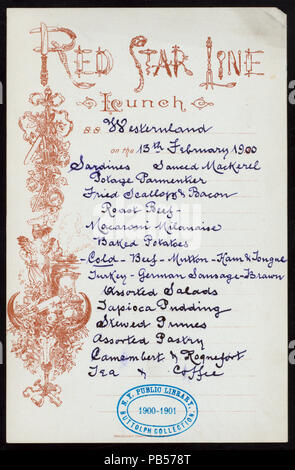 RED STAR LINE
Lunch
S.S. Westernland
on the 13th February 1900
Sardines Soused Mackerel
Potage Parmentier
Fried Scallops & Bacon
Roast Beef -
Macaroni Milanaise
Baked Potatoes
- Cold - Beef - Mutton - Ham & Tongue
Turkey - German Sausage - Brawn
Assorted Salads
Tapioca Pudding
Stewed Prunes
Assorted Pastry
Camembert & Roquefort
Tea & Coffee
N.Y. PUBLIC LIBRARY
1900-1901
BUTTOLPH COLLECTION.
alamy
PB578T